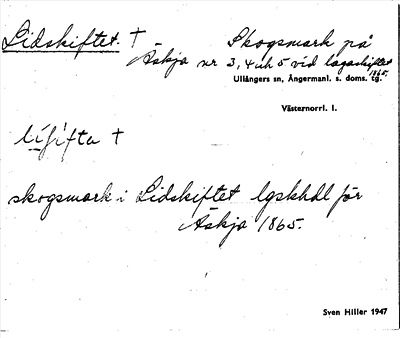 Lidskiftet. †
Skogsmark på
Äskja nr 3, 4 och 5 vid lagaskiftet
1865.
Ullångers sn, Ångermanl. s. doms. tg.
Västernorrl. l.
li̱ʃifta †
skogsmark i Lidskiftet lgskhdl för
Äskja 1865.
Sven Hiller 1947